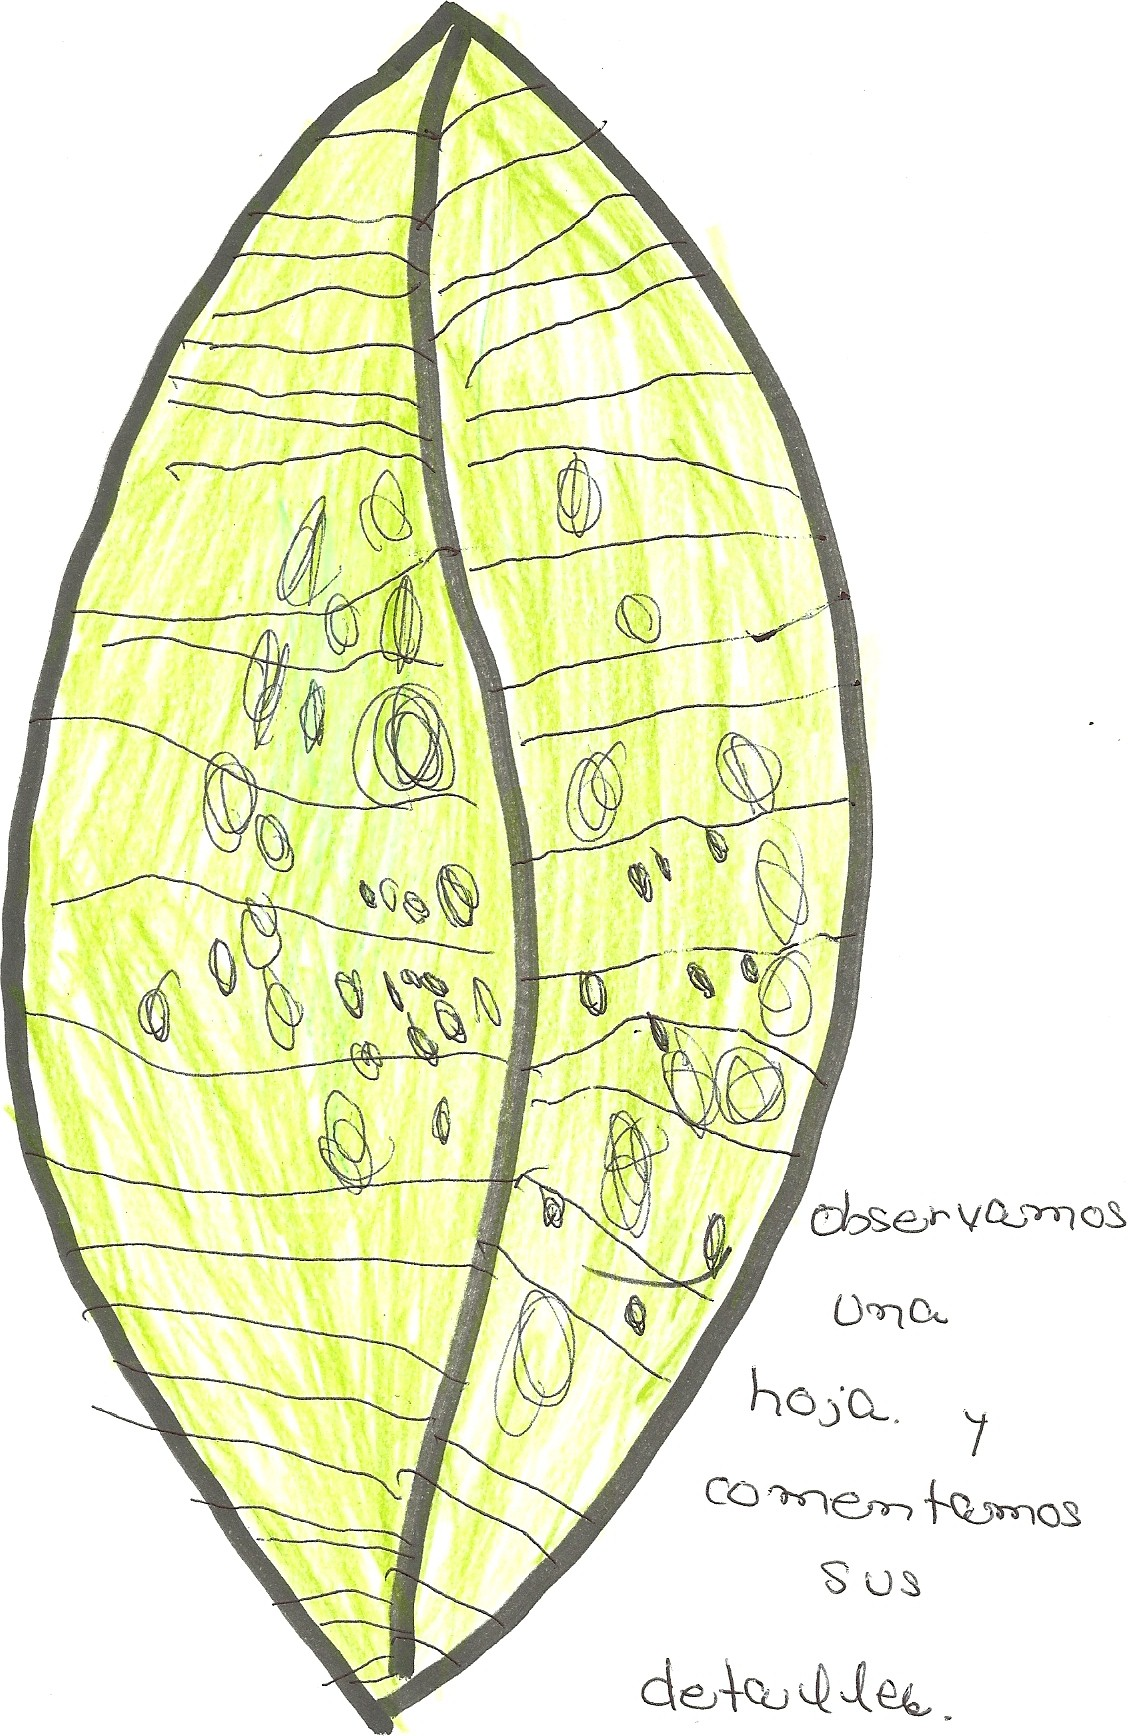 observamos
una
hoja. y
comentamos
sus
detalles.